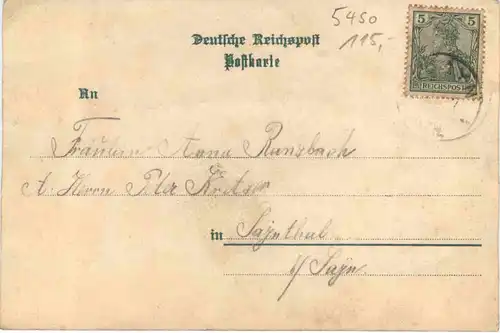 5450
115,-
5 5
REICHSPOST
Deutsche Reichspost
Postkarte
An
Fräulein Anna Ransbach
A. Herrn Peter
in Saynthal
b/ Sayn